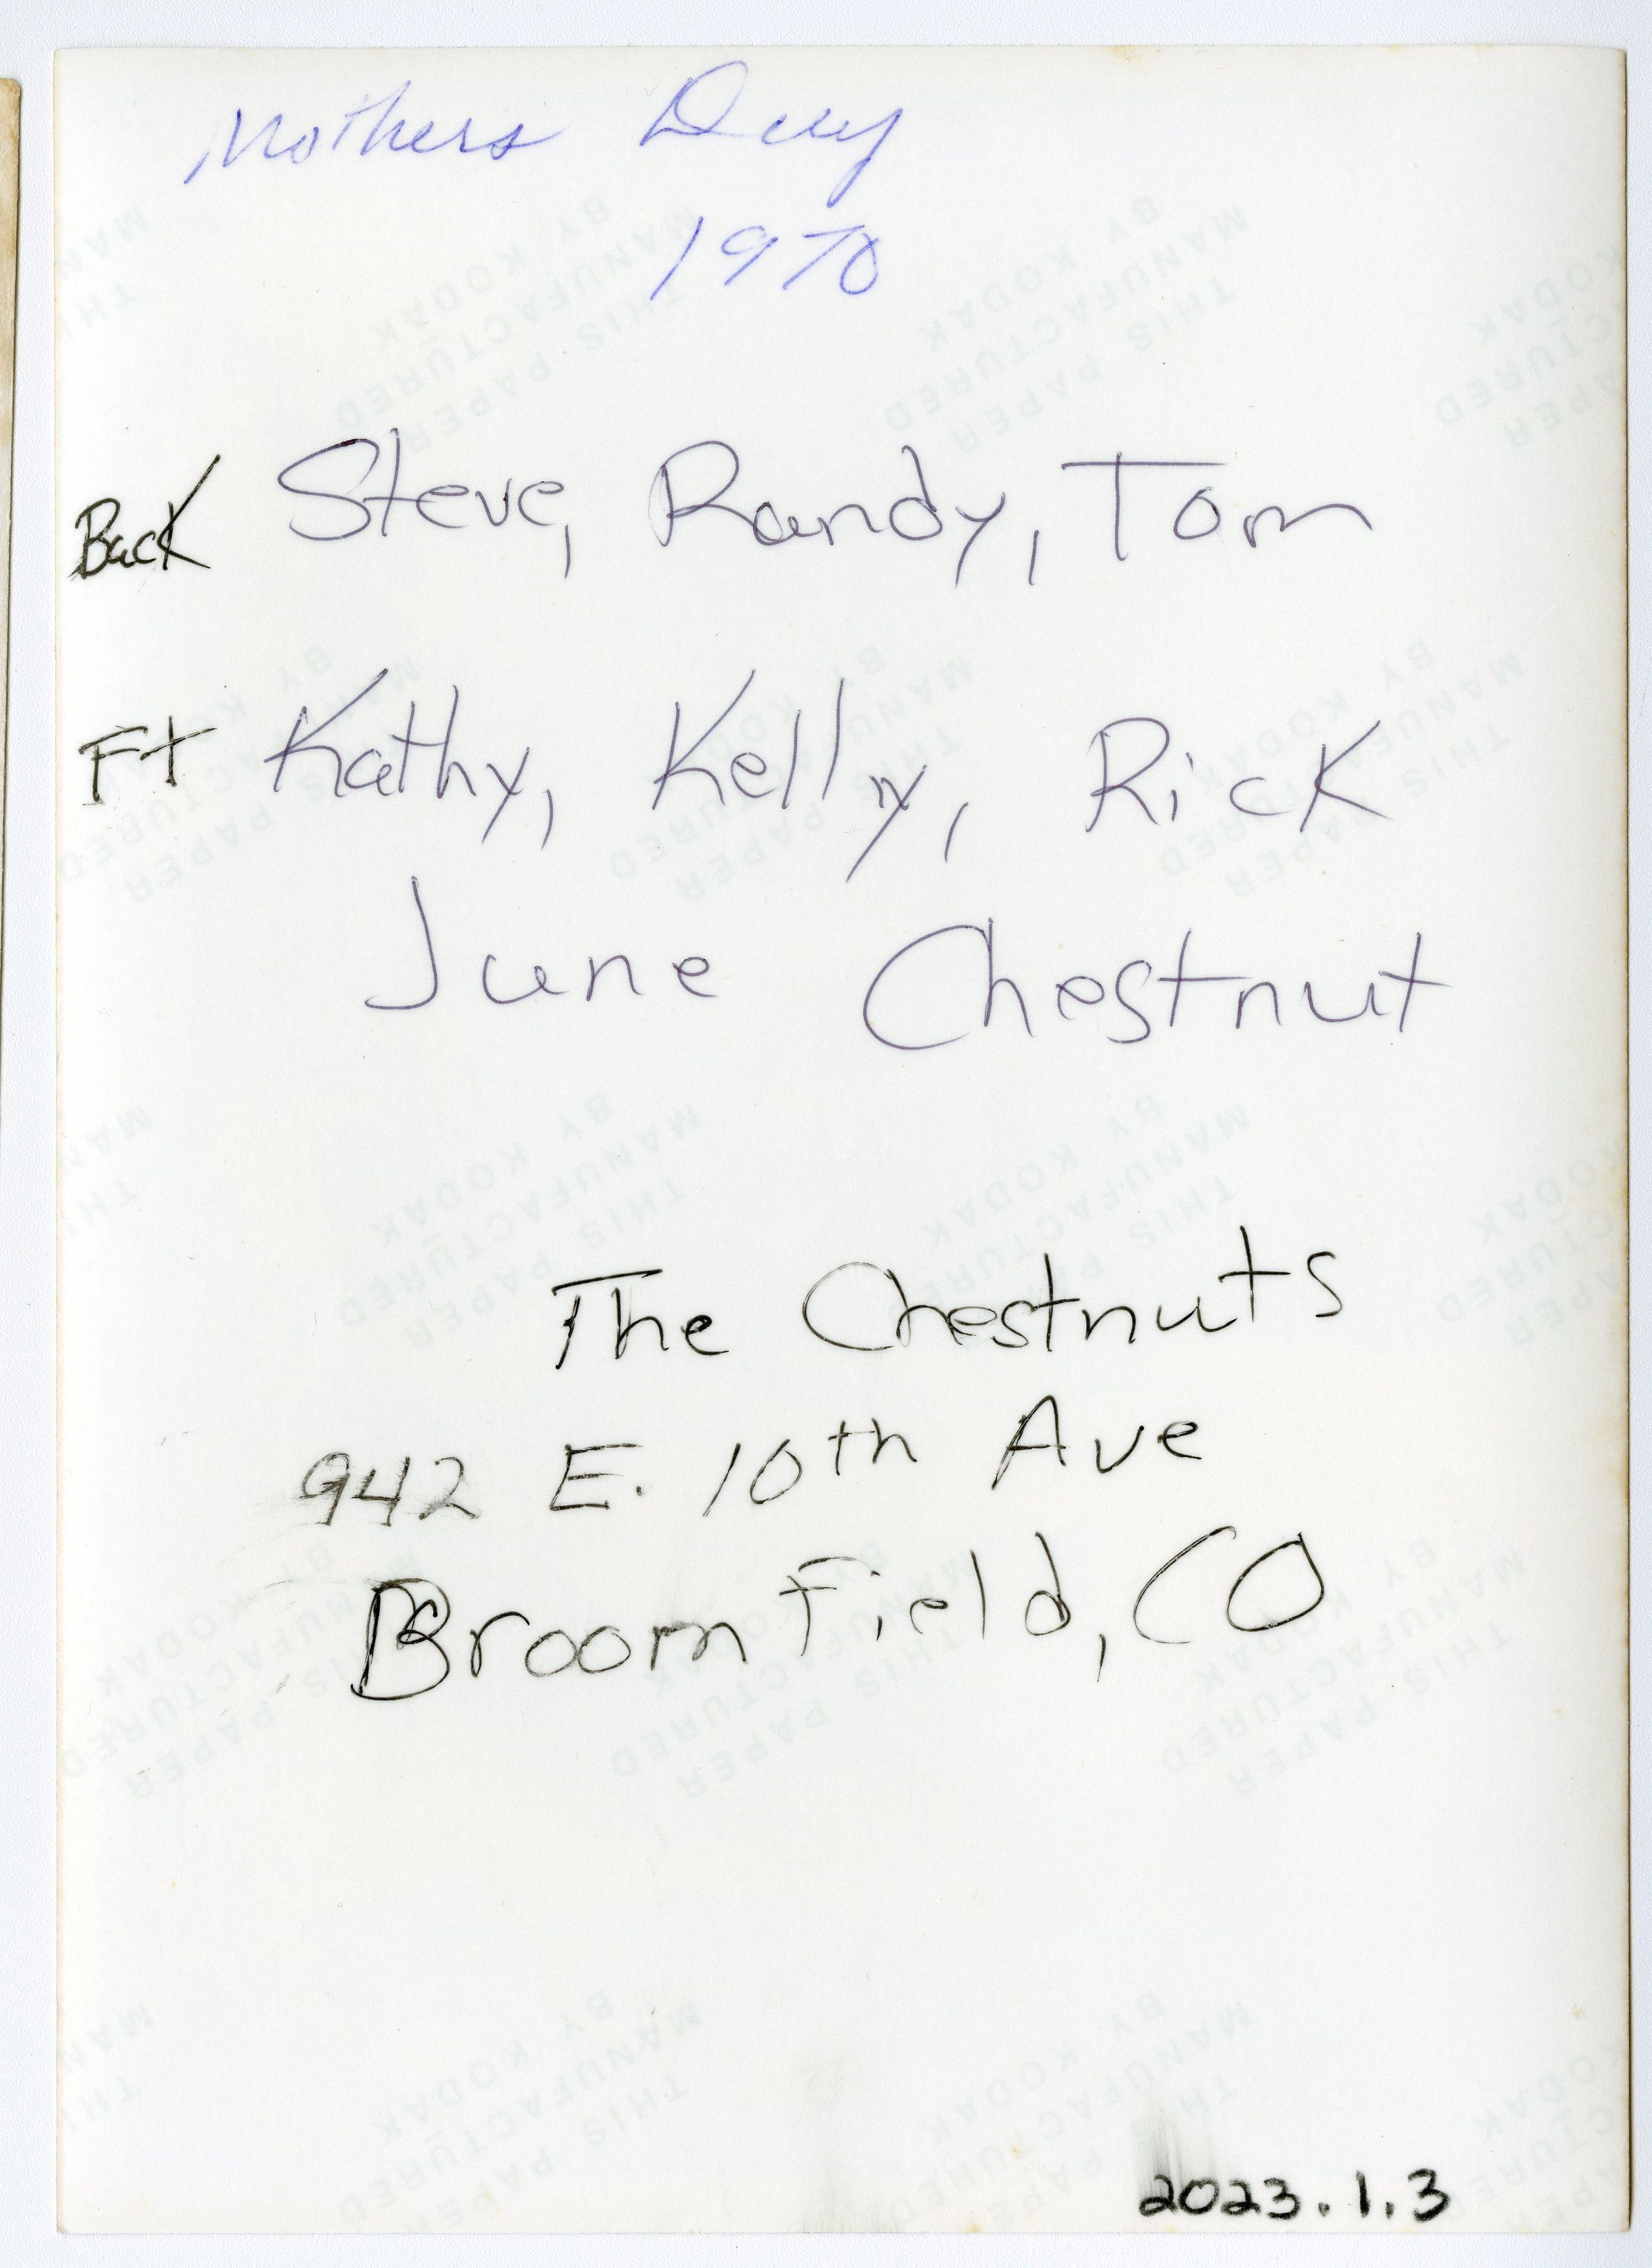 Mothers Day
1970
Back Steve, Randy, Tom
Ft Kathy, Kelly, Rick
June Chestnut
The Chestnuts
942 E. 10th Ave
Broomfield, CO
2023.1.3
THIS PAPER
MANUFACTURED
BY KODAK